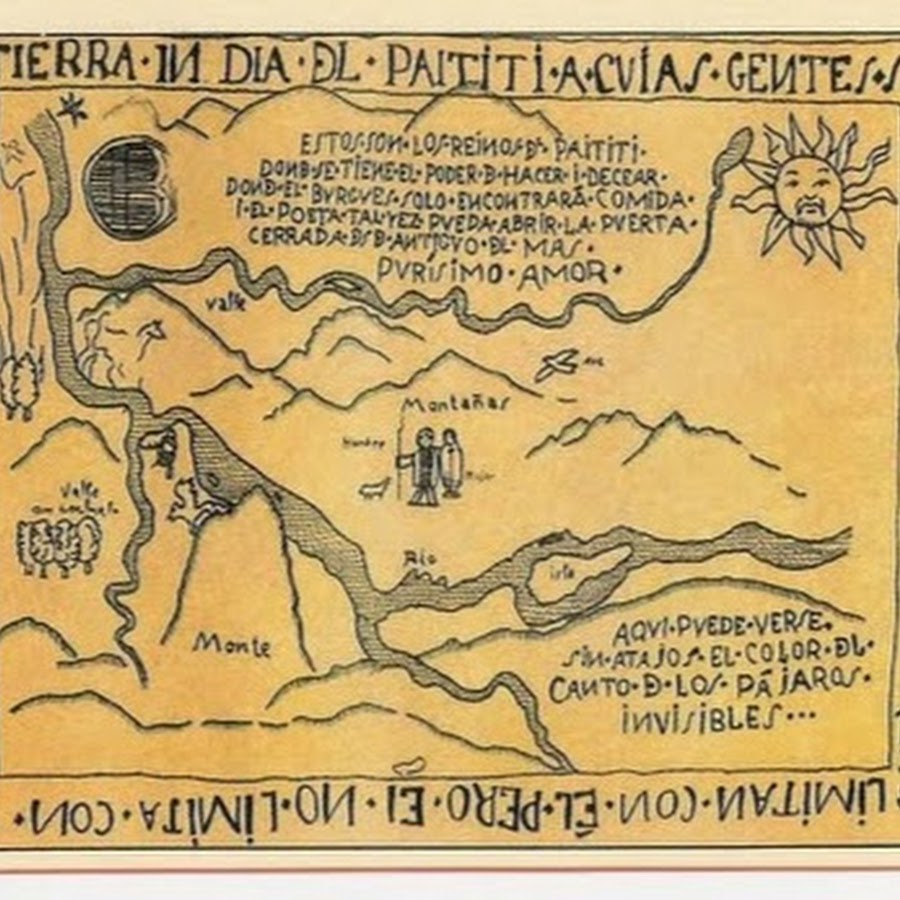 TIERRA·IN DIA·DL·PAITITI·A·CVIAS·GENTES·S
ESTOS·SON·LOS·REINOS·DL·PAITITI·
DOND·SE·TIENE·EL·PODER·D·HACER·I·DECEAR·
DOND·EL·BVRGVES·SOLO·ENCONTRARÁ·COMIDA·
I·EL·POETA·TAL·VEZ·PVEDA·ABRIR·LA·PVERTA·
CERRADA·DSD·ANTIGVO·DL·MAS·
PVRÍSIMO·AMOR·
valle
AVE
Montañas
Hombre
Mujer
Valle
Río
isla
Monte
AQVI·PVEDE·VERSE·
SIN·ATAJOS·EL·COLOR·DL·
CANTO·D·LOS·PÁJAROS·
INVISIBLES...
LIMITAN·CON·ÉL·PERO·EI·NO·LIMITA·CON·